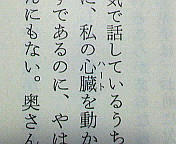 気で話しているうち
に、私の心臓を動か
ハート
すであるのに、やは
んにもない。奥さん